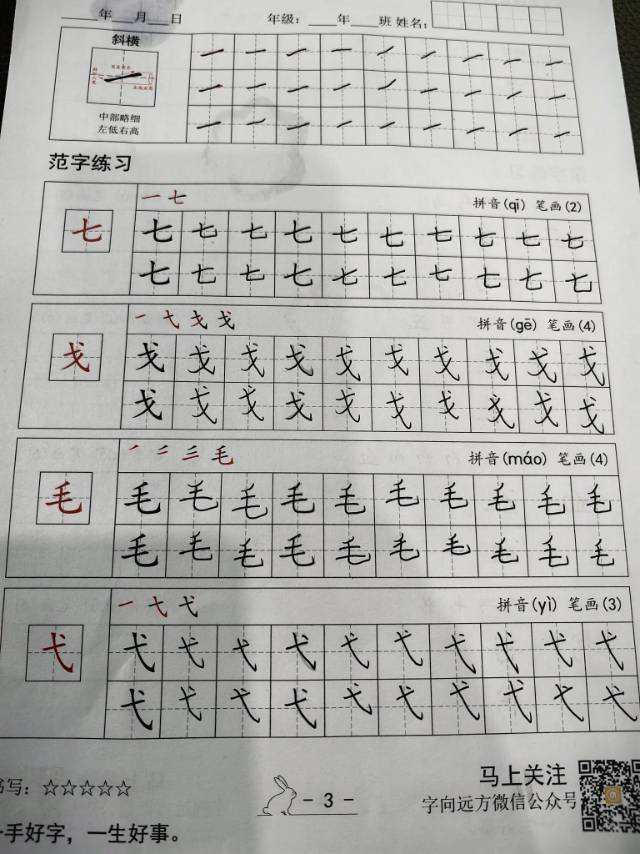 ____年____月____日 年级：____年____班 姓名：
斜横
中部略细
左低右高
范字练习
一 七 拼音(qī) 笔画(2)
七 七 七 七 七 七 七 七 七 七 七
七 七 七 七 七 七 七 七 七 七
拼音(gē) 笔画(4)
戈 戈 戈 戈 戈 戈 戈 戈 戈 戈 戈
戈 戈 戈 戈 戈 戈 戈 戈 戈 戈
毛 拼音(máo) 笔画(4)
毛 毛 毛 毛 毛 毛 毛 毛 毛 毛 毛
毛 毛 毛 毛 毛 毛 毛 毛 毛 毛
一 弋 弋 拼音(yì) 笔画(3)
弋 弋 弋 弋 弋 弋 弋 弋 弋 弋 弋
弋 弋 弋 弋 弋 弋 弋 弋 弋 弋
写：☆☆☆☆☆
- 3 -
马上关注
字向远方微信公众号
手好字，一生好事。